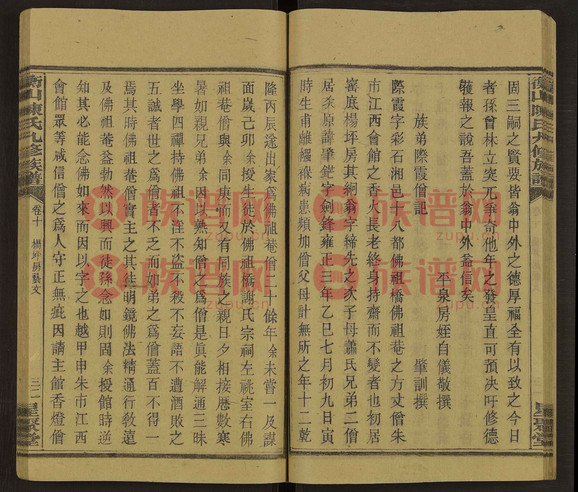 固三嗣之賢要皆翁中外之德厚福全有以致之今日
者孫曾林立突兀崢嶸他年之發皇直可預决吁修德
獲報之說吾蓋於翁中外益信矣
平泉房姪自儀敬撰
族弟際霞僧記
肇訓撰
際霞字彩石湘邑十八都佛祖橋佛祖菴之方丈僧朱
市江西會館之香火長老終身持齋而不變者也初居
窑底楊坪房其嗣翁字締先之次子母蕭氏兄弟二僧
居次原諱肇 字劍鋒雍正三年乙巳七月初九日寅
時生甫離襁褓病患頻加僧父母計無所之年十二乾
隆丙辰遂出家爲佛祖菴僧三十餘年余未嘗一及謀
面歲己卯余授生徒於佛祖橋謝氏宗祠左祧室右佛
祖菴僧與余同庚而又有同族之親日夕相接歷數寒
暑如親兄弟余因以熟知僧之爲僧是眞能解通三昧
坐學四禪持佛祖不淫不盜不殺不妄語不遭酒敗之
五誡者世之爲僧者不乏而如弟之爲僧蓋百不得一
焉其時佛祖菴僧實主之其徒明鏡佛法精通行敎遠
及佛祖菴益勃然以興而徒孫念如則固余授館時逆
知其必能念佛如來而因以字之也越甲申朱市江西
會館眾等咸信僧之爲人守正無疵因請主館香燈僧
衡山陳氏九修族譜
卷十
楊坪房藝文
三二
星聚堂
族谱网